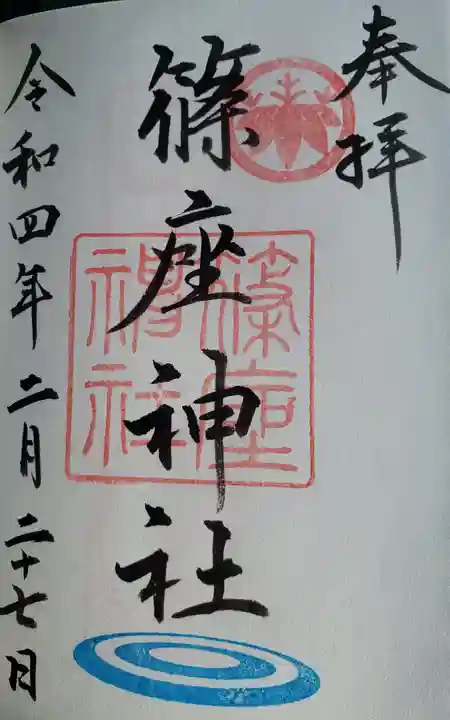 奉拝
篠座神社
篠座
神社
令和四年二月二十七日